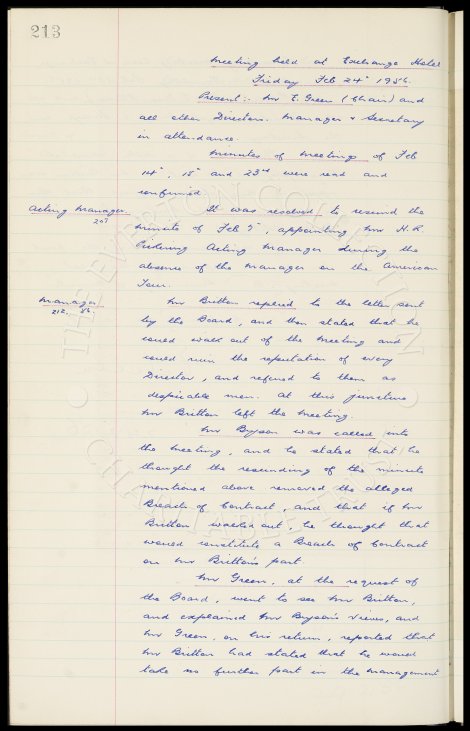 213
Meeting held at Exchange Hotel
Friday Feb 24" 1956.
Present:- Mr E. Green (Chair) and
all other Directors. Manager & Secretary
in attendance.
Minutes of Meetings of Feb
14", 18" and 23rd were read and
confirmed.
Acting Manager
207
It was resolved to rescind the
minute of Feb 7", appointing Mr H. R.
Pickering Acting Manager during the
absence of the Manager on the American
Tour.
Manager
212.
Mr Britton replied to the letter sent
by the Board, and then stated that he
could walk out of the Meeting and
could ruin the reputation of every
Director, and refered to them as
despicable men. At this juncture
Mr Britton left the Meeting.
Mr Bryson was called into
the Meeting, and he stated that he
thought the rescinding of the minute
mentioned above removed the alleged
Breach of Contract, and that if Mr
Britton walked out, he thought that
would constitute a Breach of Contract
on Mr Britton's part.
Mr Green, at the request of
the Board, went to see Mr Britton,
and explained Mr Bryson's views, and
Mr Green, on his return, reported that
Mr Britton had stated that he would
take no further part in the management
THE EVERTON COLLECTION
CHARITABLE TRUST